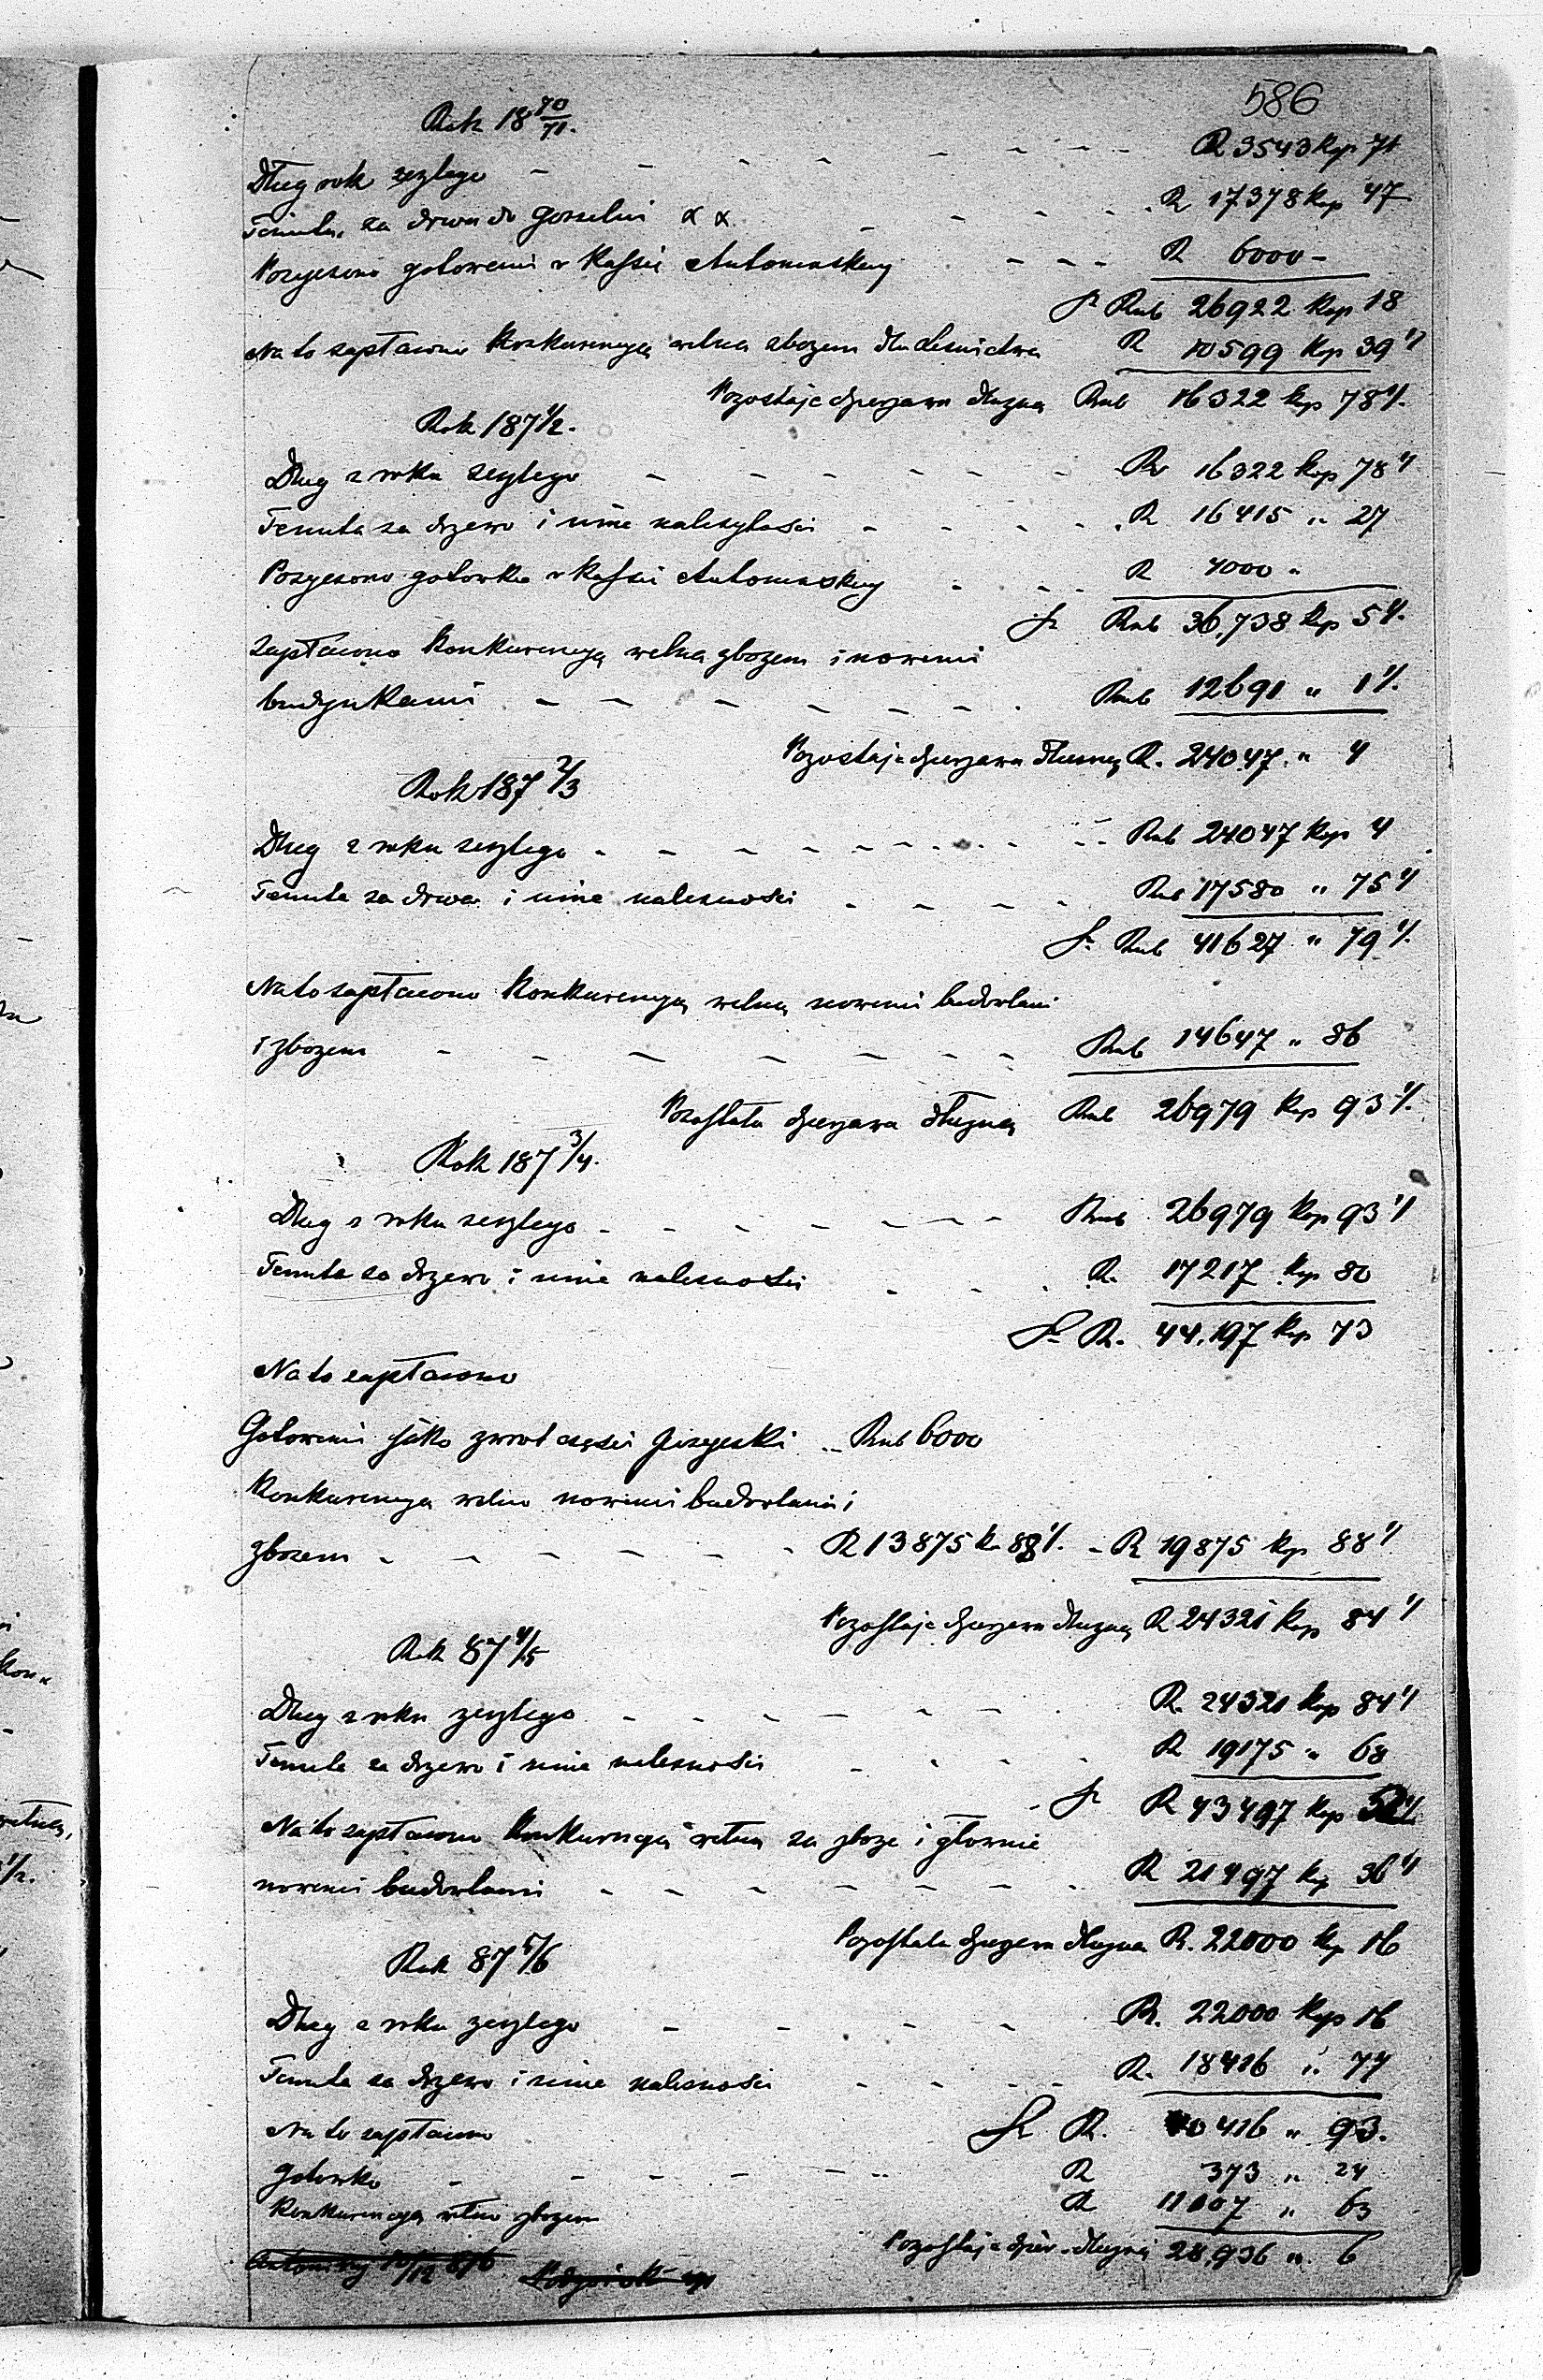 586
Rok 18 70/71.
Dług rok zeszłego - - - - - - - R 3543 kop 71
Tenuta, za drwa do gorzelni x x - - - - R 17378 kop 47
Pozyczono gotowemi w Kassie Antoninskiej - - - R 6000 -
Sr Rub 26922 kop 18
Na to zapłacono Konkurencyą wełną zbozem dla lesnictwa R 10599 kop 39 ½
Pozostaje dzierzawa dłuzną Rub 16322 kop 78 ½.
Rok 187 1/2.
Dług z roku zeszłego - - - - - - - R 16322 kop 78 ½
Tenuta za drzewo i inne nalezytosci - - - - - R 16415 " 27
Pozyczono gotowką w Kassie Antoninskiej - - - R 4000 "
Sr Rub 36,738 kop 5 ½.
Zapłacono Konkurencyą wełną zbozem i nowemi
budynkami - - - - - - - Rub 12691 " 1 ½.
Pozostaje dzierzawa dłuzną R. 24047 " 4
Rok 187 2/3
Dług z roku zeszłego - - - - - - - - - Rub 24047 kop 4
Tenuta za drwa i inne naleznosci - - - - - Rub 17580 " 75 ½
Sr. Rub 41627 " 79 ½.
Na to zapłacono Konkurencyą wełną nowemi budowlami
i zbozem - - - - - - - Rub 14647 " 86
Pozostała dzierzawa dłuzną Rub 26979 kop 93 ½.
Rok 187 3/4.
Dług z roku zeszłego - - - - - - - - Rub 26979 kop 93 ½
Tenuta za drzewo i inne naleznosci - - - R. 17217 kop 80
Sr R. 44,197 kop 73
Na to zapłacono
Gotowemi jako zwrot częsci pozyczki - Rub 6000
Konkurencyą wełną nowemi budowlami i
zbozem - - - - - - R 13875 k. 88 ½. - R 19875 kop 88 ½
Pozostaje dzierzawa dłuzną R 24321 kop 84 ½
Rok 87 4/5
Dług z roku zeszłego - - - - - - - R. 24321 kop 84 ½
Tenuta za drzewo i inne naleznosci - - - - R 19175 " 68
Sr R 43497 kop 52 ½
Na to zapłacono Konkurencyą wełną za zboze i głownie
nowemi budowlami - - - - - - - R 21497 kop 36 ½
Pozostała dzierzawa dłuzna R. 22000 kop 16
Rok 87 5/6
Dług z roku zeszłego - - - - - R. 22000 kop 16
Tenuta za drzewo i inne naleznosci - - - - R. 18416 " 77
Sr R. 40416 " 93.
Na to zapłacono
gotowką - - - - - - R 373 " 24
Konkurencyą wełną zbozem R 11107 " 63
Pozostaje dzier. dłuzną 28,936 " 6
Antoniny 10/12 876